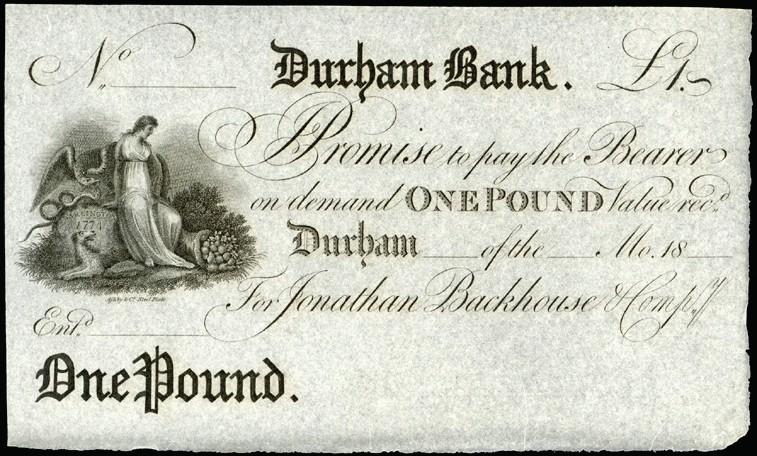 No. Durham Bank. £1.
I Promise to pay the Bearer
on demand ONE POUND Value recd.
Durham of the Mo. 18
For Jonathan Backhouse & Compy.
1774
Entd.
One Pound.